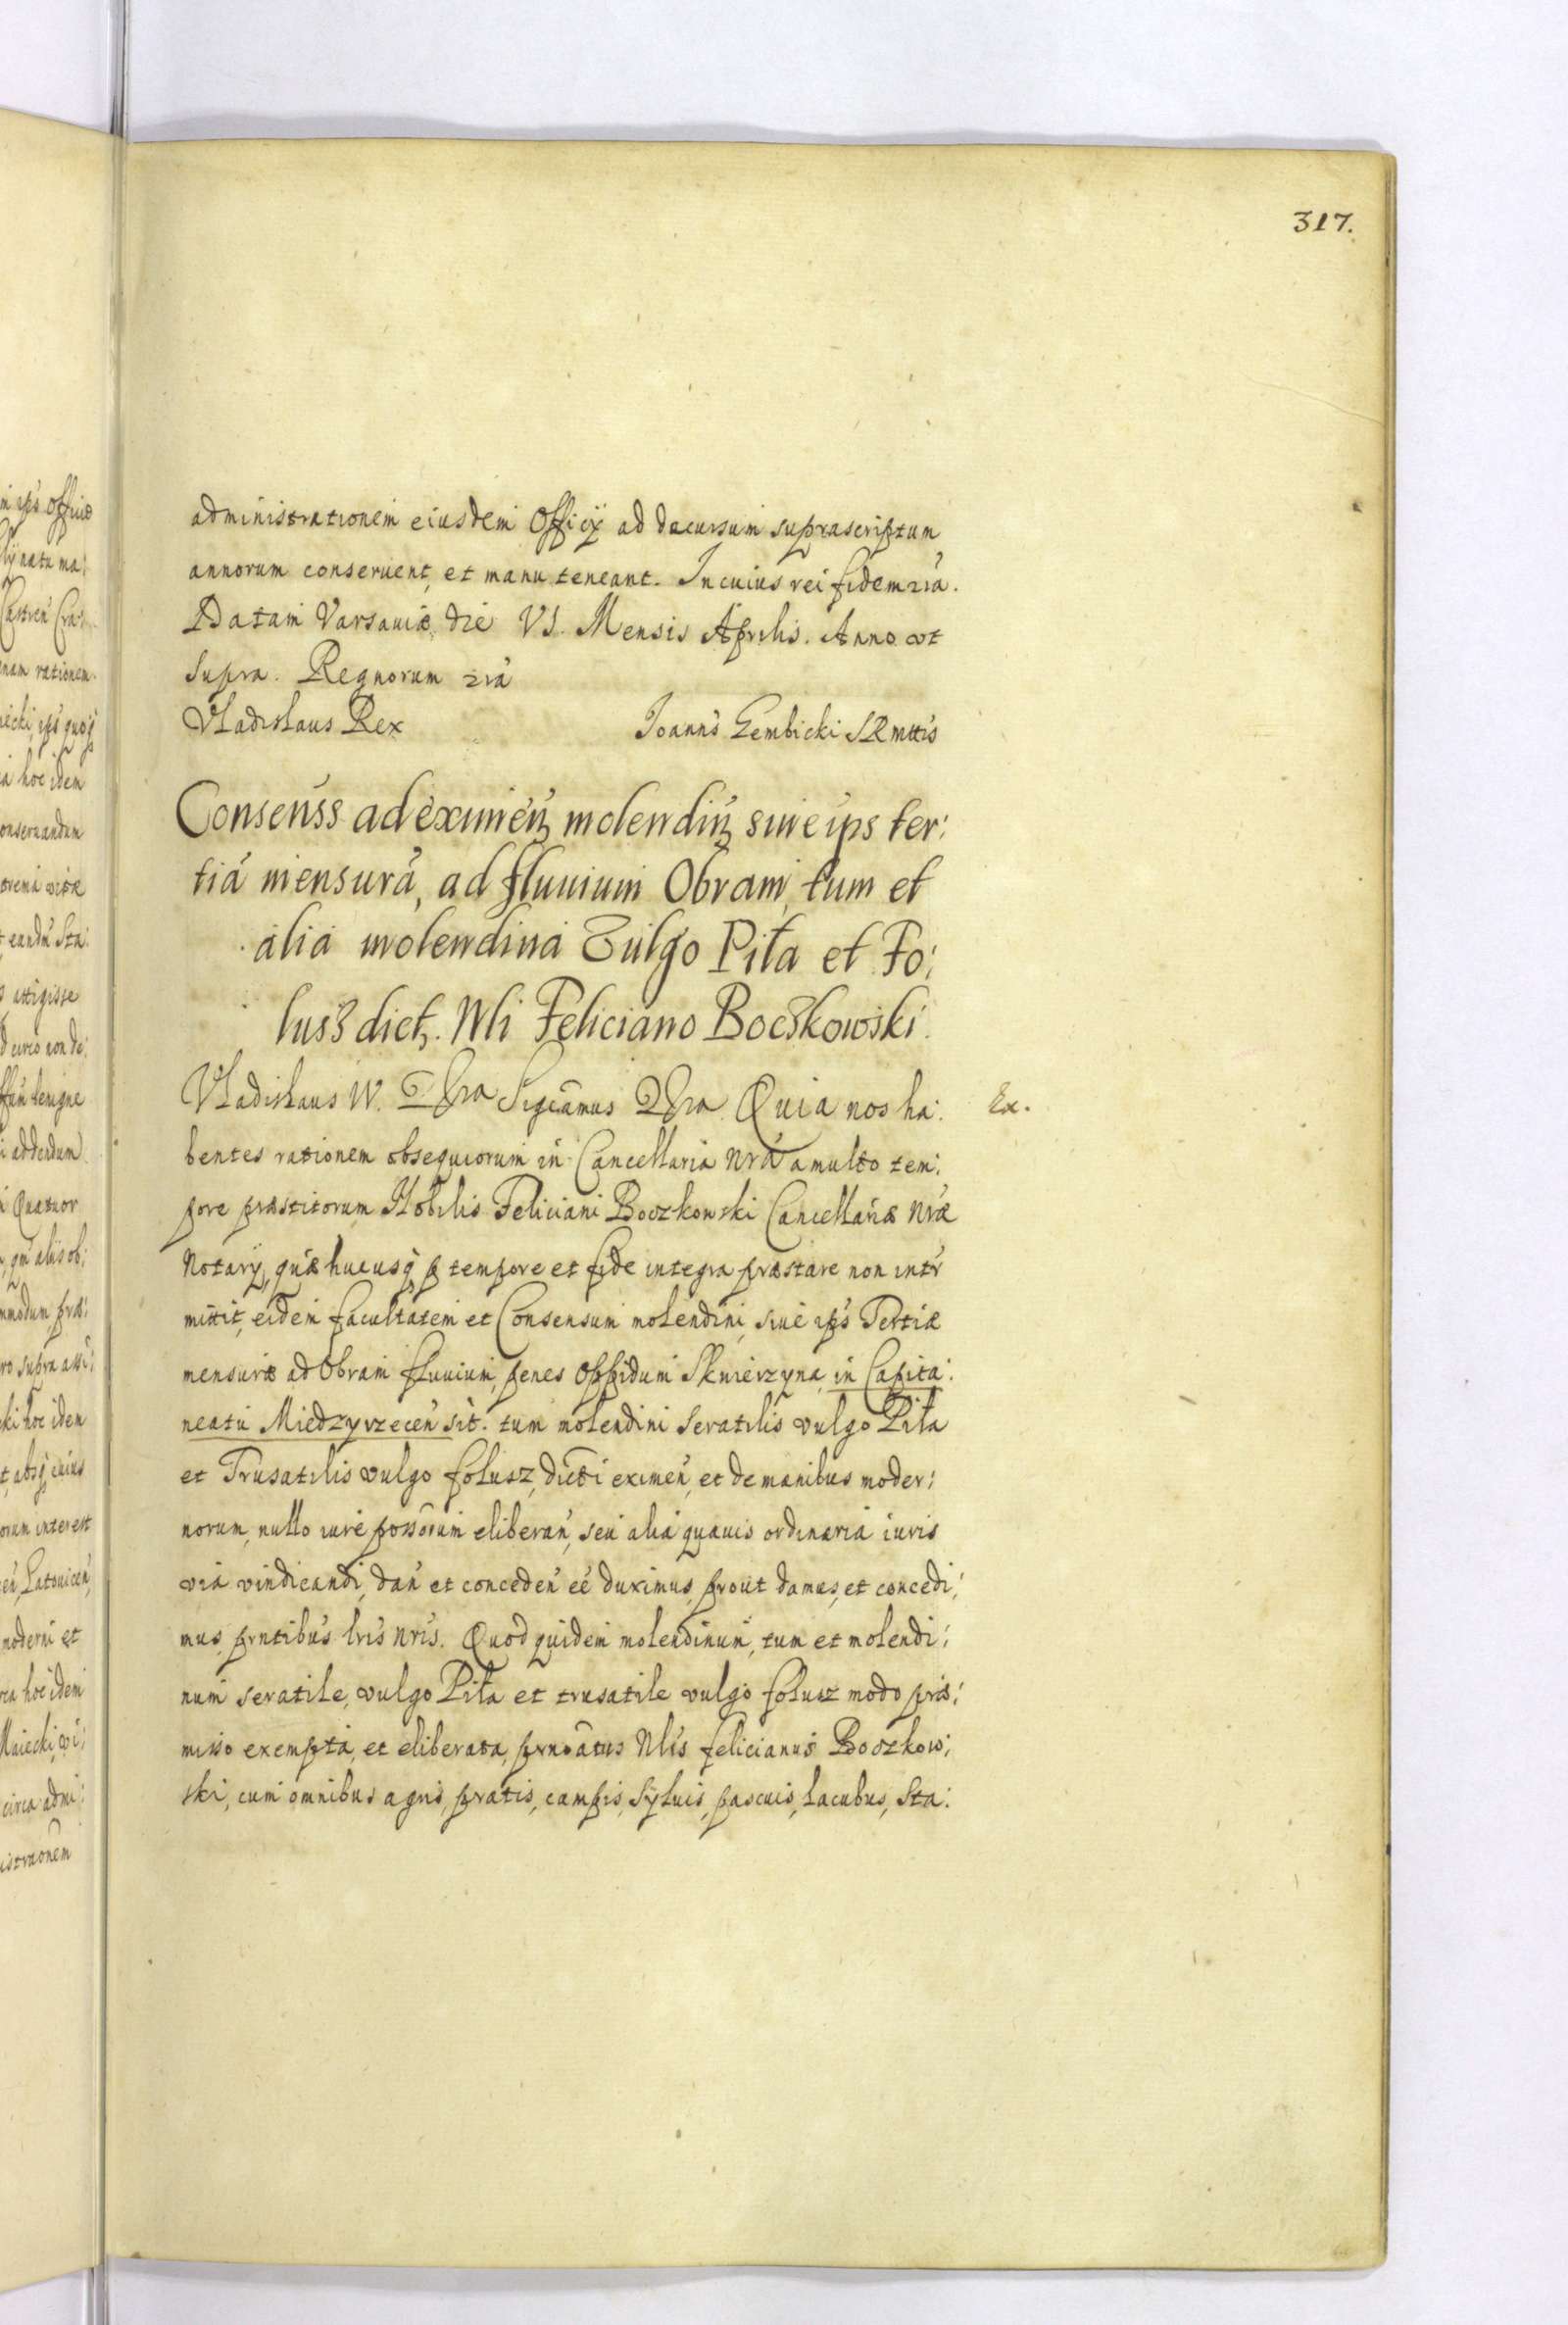 317.
administrationem eiusdem Officÿ ad decursum suprascriptum
annorum conseruent, et manu teneant. In cuius rei fidem zrã.
Datam Varsauiæ, die VI. Mensis Aprilis. Anno vt
supra. Regnorum zrã
Vladislaus Rex Joann's Gembicki SRmttis
Consen'ss ad eximien' molendin' siue ip's ter:
tiã mensurã, ad fluuium Obram, tum et
alia molendina vulgo Piła et Fo:
luss dict. Nli Feliciano Bocskowski.
Vladislaus IV. Significamus Quia nos ha: Ex.
bentes rationem obsequiorum in Cancellaria nrã a multo tem:
pore præstitorum Nobilis Feliciani Boczkowski Cancellariæ nræ
Notarÿ, quæ hucusq̃ p tempore et fide integra præstare non intr̃
mittit, eidem facultatem et Consensum molendini, siue ip's Tertiæ
mensuræ ad Obram fluuium, penes oppidum Skwierzyna, in Capita:
neatu Miedzyrzecen' sit. tum molendini seratilis vulgo Piła
et Trusatilis vulgo folusz, dicti eximen', et de manibus moder:
norum, nullo iure possorum eliberan', seu alia quauis ordinaria iuris
via vindicandi, dan' et conceden' eé duximus, prout damus, et concedi:
mus, prntibus lris nris. Quod quidem molendinum, tum et molendi:
num seratile, vulgo Piła et trusatile vulgo folusz modo præ:
misso exempta, et eliberata, prnoatus Nlis felicianus Boczkow:
ski, cum omnibus agris, pratis, campis, sÿluis, pascuis, lacubus, sta: